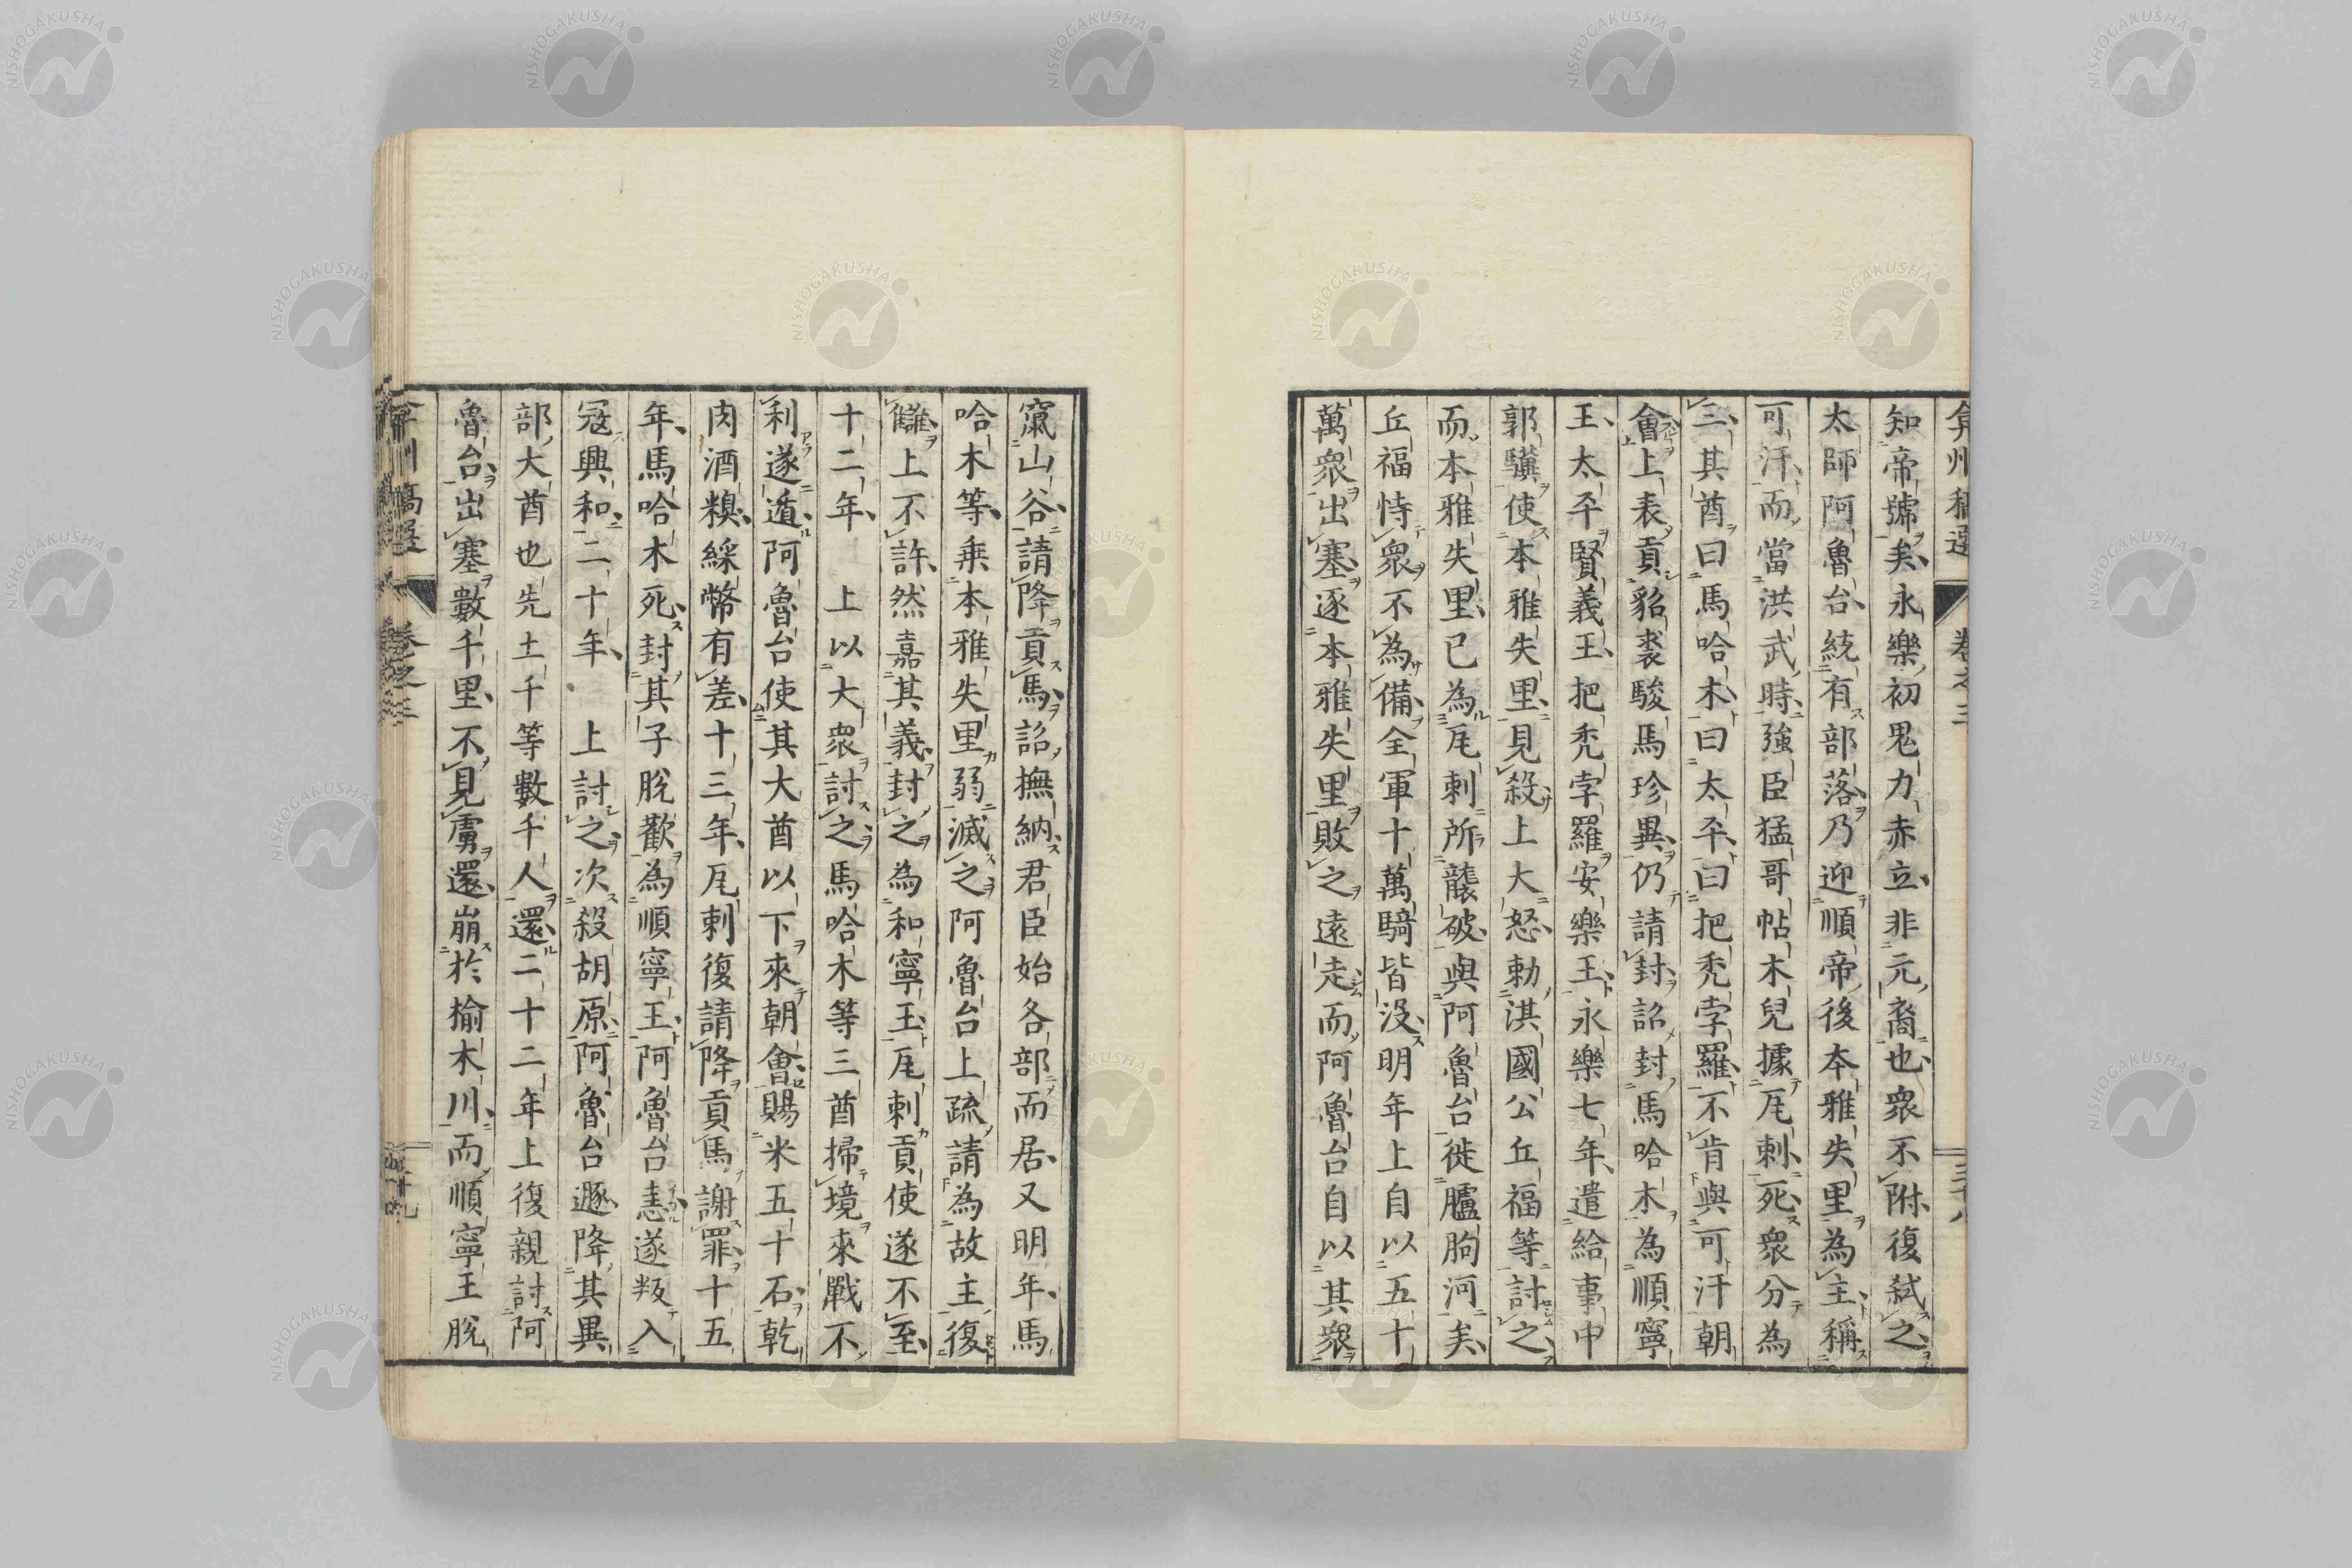 弇州稿選 卷之三 三十八
知帝號矣永樂初鬼力赤立非元裔也衆不附復弑之
太師阿魯台統有部落乃迎順帝後本雅失里為主稱
可汗而當洪武時強臣猛哥帖木兒據瓦剌死衆分為
三其酋曰馬哈木曰太平曰把禿孛羅不肯與可汗朝
會上表貢貂裘駿馬珍異仍請封詔封馬哈木為順寧
王太平賢義王把禿孛羅安樂王永樂七年遣給事中
郭驥使本雅失里見殺上大怒勅淇國公丘福等討之
而本雅失里已為瓦剌所襲破與阿魯台徙臚朐河矣
丘福恃衆不為備全軍十萬騎皆沒明年上自以五十
萬衆出塞逐本雅失里敗之遠走而阿魯台自以其衆
竄山谷請降貢馬詔撫納君臣始各部而居又明年馬
哈木等乗本雅失里弱滅之阿魯台上疏請為故主復
讎上不許然嘉其義封之為和寧王瓦剌貢使遂不至
十二年 上以大衆討之馬哈木等三酋掃境來戰不
利遂遁阿魯台使其大酋以下來朝會賜米五十石乾
肉酒糗綵幣有差十三年瓦剌復請降貢馬謝罪十五
年馬哈木死封其子脫歡為順寧王阿魯台恚遂叛入
寇興和二十年 上討之次殺胡原阿魯台遯降其異
部大酋也先土干等數千人還二十二年上復親討阿
魯台出塞數千里不見虜還崩於榆木川而順寧王脫
弇州稿選 卷之三
NISHOGAKUSHA